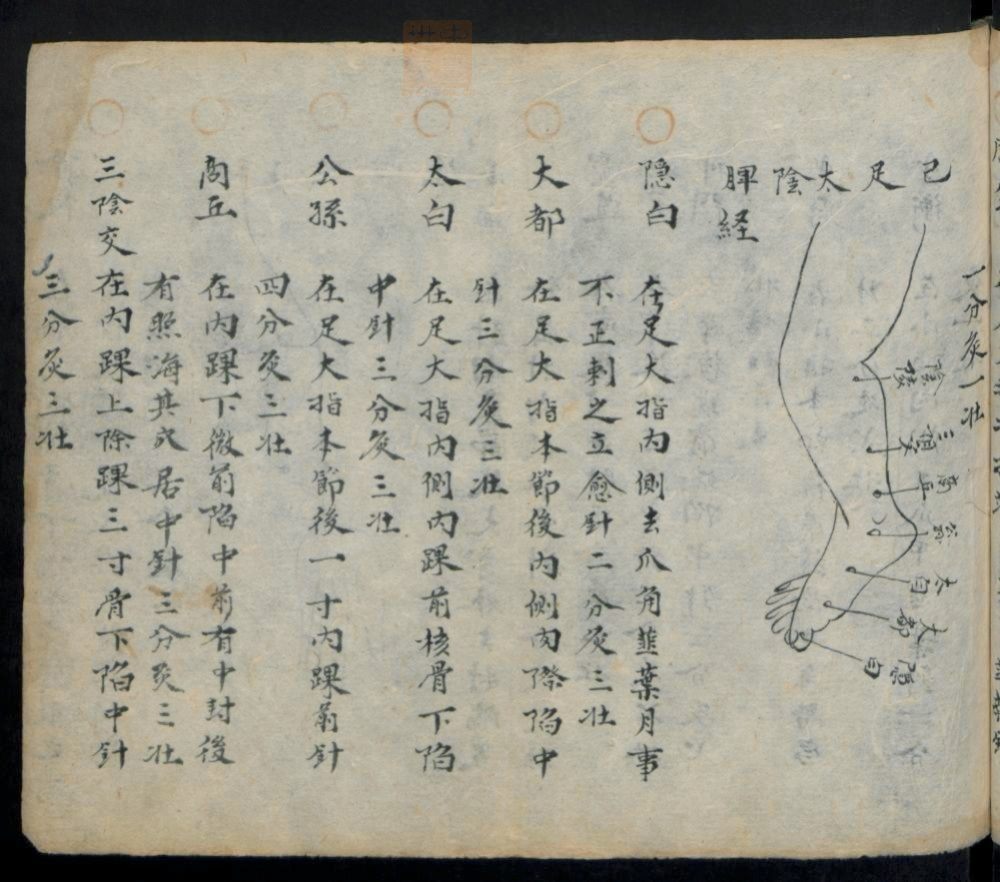 一分灸一壯
己足太陰
脾経
陰陵
三阴交
商丘
公孫
太白
大都
隠白
隠白 在足大指内側去爪角韮葉月事
不正刺之立愈針二分灸三壮
大都 在足大指本節後内側肉際陷中
針三分灸三壮
太白 在足大指内側内踝前核骨下陷
中針三分灸三壮
公孫 在足大指本節後一寸内踝前針
四分灸三壮
商丘 在内踝下微前陷中前有中封後
有照海其穴居中針三分灸三壮
三陰交 在内踝上除踝三寸骨下陷中針
三分灸三壮